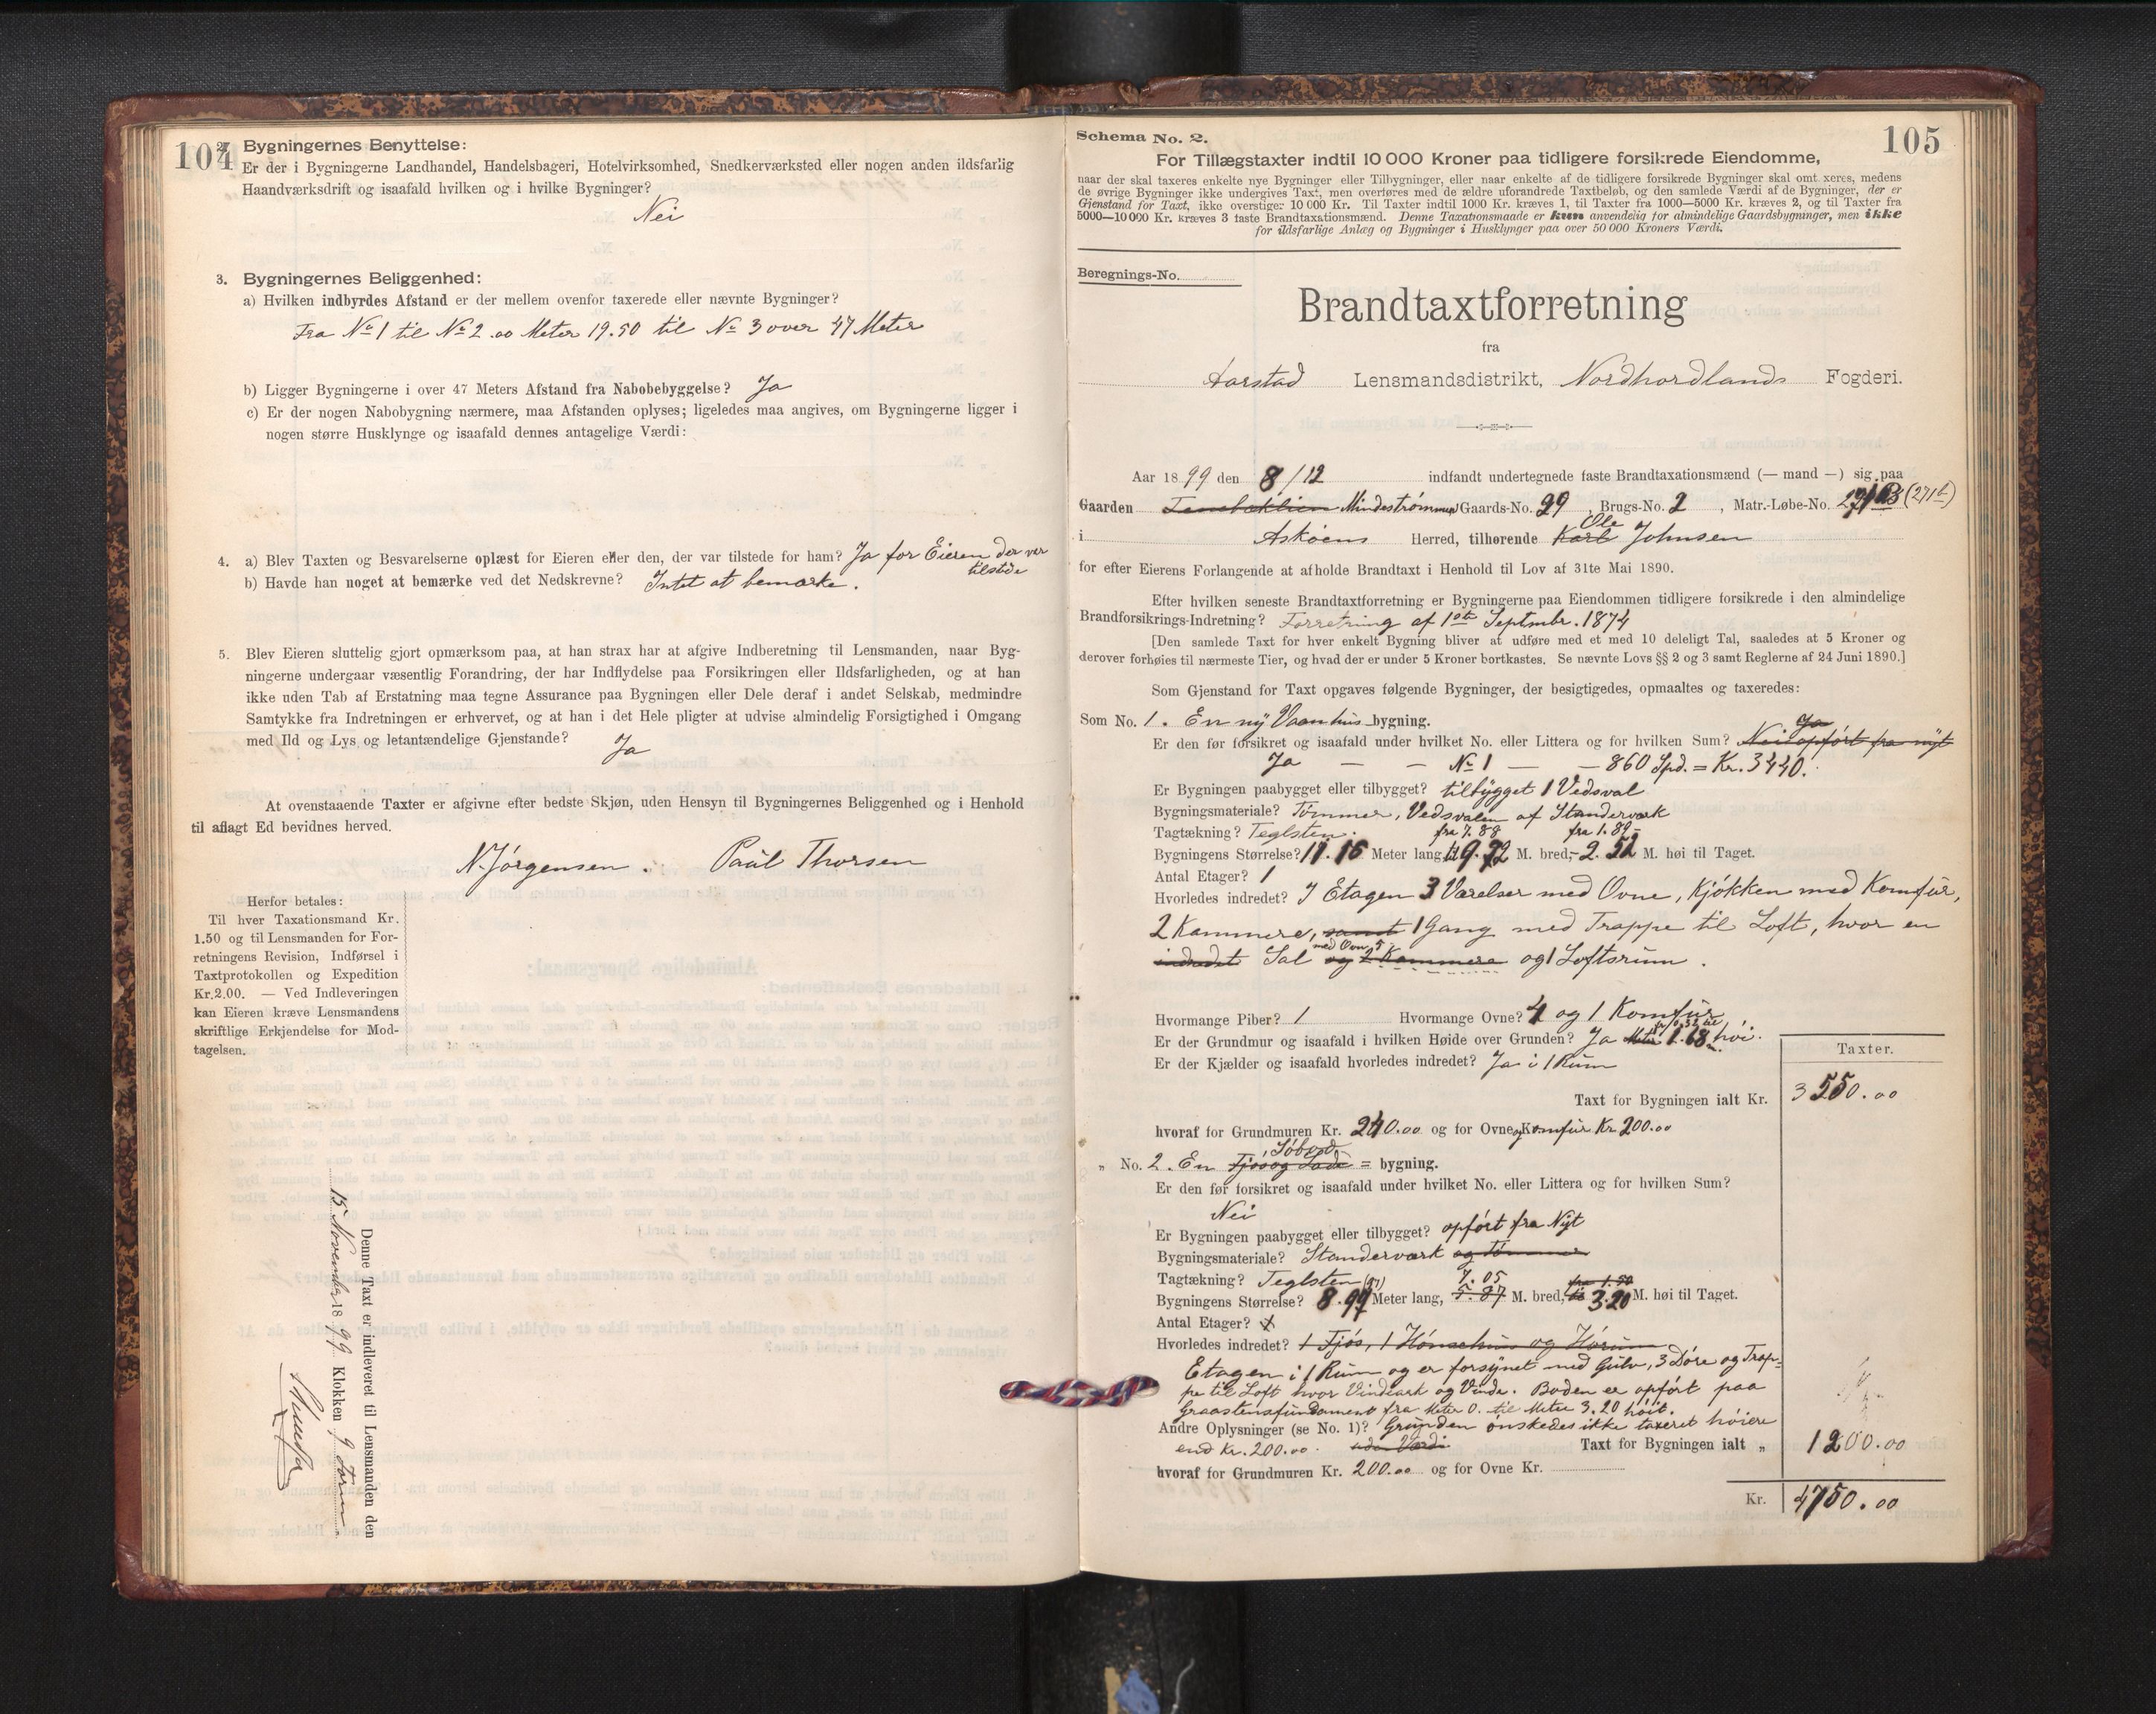 104
2. Bygningernes Benyttelse:
Er der i Bygningerne Landhandel, Handelsbageri, Hotelvirksomhed, Snedkerværksted eller nogen anden ildsfarlig
Haandværksdrift og isaafald hvilken og i hvilke Bygninger?
Nei
3. Bygningernes Beliggenhed:
a) Hvilken indbyrdes Afstand er der mellem ovenfor taxerede eller nævnte Bygninger?
Fra No 1 til No 2 .00 Meter 19.50 til No 3 over 47 Meter
b) Ligger Bygningerne i over 47 Meters Afstand fra Nabobebyggelse? Ja
c) Er der nogen Nabobygning nærmere, maa Afstanden oplyses; ligeledes maa angives, om Bygningerne ligger i
nogen større Husklynge og isaafald dennes antagelige Værdi:
4. a) Blev Taxten og Besvarelserne oplæst for Eieren eller den, der var tilstede for ham? Ja for Eieren der var
tilstede
b) Havde han noget at bemærke ved det Nedskrevne? Intet at bemærke.
5. Blev Eieren sluttelig gjort opmærksom paa, at han strax har at afgive Indberetning til Lensmanden, naar Byg-
ningerne undergaar væsentlig Forandring, der har Indflydelse paa Forsikringen eller Ildsfarligheden, og at han
ikke uden Tab af Erstatning maa tegne Assurance paa Bygningen eller Dele deraf i andet Selskab, medmindre
Samtykke fra Indretningen er erhvervet, og at han i det Hele pligter at udvise almindelig Forsigtighed i Omgang
med Ild og Lys og letantændelige Gjenstande? Ja
At ovenstaaende Taxter er afgivne efter bedste Skjøn, uden Hensyn til Bygningernes Beliggenhed og i Henhold
til aflagt Ed bevidnes herved.
N. Jørgensen . Paul Thorsen
Herfor betales:
Til hver Taxationsmand Kr.
1.50 og til Lensmanden for For-
retningens Revision, Indførsel i
Taxtprotokollen og Expedition
Kr. 2.00. — Ved Indleveringen
kan Eieren kræve Lensmandens
skriftlige Erkjendelse for Mod-
tagelsen.
Denne Taxt er indleveret til Lensmanden den
15 November 1899 Klokken 9 Form.
105
Schema No. 2.
For Tillægstaxter indtil 10 000 Kroner paa tidligere forsikrede Eiendomme,
naar der skal taxeres enkelte nye Bygninger eller Tilbygninger, eller naar enkelte af de tidligere forsikrede Bygninger skal omt xeres, medens
de øvrige Bygninger ikke undergives Taxt, men overføres med de ældre uforandrede Taxtbeløb, og den samlede Værdi af de Bygninger, der er
Gjenstand for Taxt, ikke overstiger 10 000 Kr. Til Taxter indtil 1000 Kr. kræves 1, til Taxter fra 1000—5000 Kr. kræves 2, og til Taxter fra
5000—10 000 Kr. kræves 3 faste Brandtaxationsmænd. Denne Taxationsmaade er kun anvendelig for almindelige Gaardsbygninger, men ikke
for ildsfarlige Anlæg og Bygninger i Husklynger paa over 50 000 Kroners Værdi.
Beregnings-No.
Brandtaxtforretning
fra
Aarstad Lensmandsdistrikt, Nordhordlands Fogderi.
Aar 1899 den 8/12 indfandt undertegnede faste Brandtaxationsmænd (— mand —) sig paa
Gaarden Mindestrømmen Gaards-No. 29, Brugs-No. 2, Matr.-Løbe-No. (271b)
Ole
i Askøens Herred, tilhørende Karl Johnsen
for efter Eierens Forlangende at afholde Brandtaxt i Henhold til Lov af 31te Mai 1890.
Efter hvilken seneste Brandtaxtforretning er Bygningerne paa Eiendommen tidligere forsikrede i den almindelige
Brandforsikrings-Indretning? Forretning af 1ste Septmbr. 1874
[Den samlede Taxt for hver enkelt Bygning bliver at udføre med et med 10 deleligt Tal, saaledes at 5 Kroner og
derover forhøies til nærmeste Tier, og hvad der er under 5 Kroner bortkastes. Se nævnte Lovs §§ 2 og 3 samt Reglerne af 24 Juni 1890.]
Som Gjenstand for Taxt opgaves følgende Bygninger, der besigtigedes, opmaaltes og taxeredes:
Som No. 1. En ny Vaanhus bygning.
Ja
Er den før forsikret og isaafald under hvilket No. eller Littera og for hvilken Sum? Nei opført fra nyt
Ja — — No 1 — — 860 Spd. = Kr. 3440.
Er Bygningen paabygget eller tilbygget? tilbygget 1 Vedsval
Bygningsmateriale? Tømmer, Vedsvalen af Standerværk
Tagtækning? Teglsten. fra 7.88 fra 1.89-
Bygningens Størrelse? 11.16 Meter lang, til 9.72 M. bred, - 2.52 M. høi til Taget.
Antal Etager? 1
Hvorledes indredet? I Etagen 3 Værelser med Ovne, Kjøkken med Komfur,
2 Kammere, samt 1 Gang med Trappe til Loft, hvor en
med Ovn
indredet Sal og 2 Kammere og 1 Loftsrum.
Hvormange Piber? 1 Hvormange Ovne? 4 og 1 Komfur
fr 0.32 til
Er der Grundmur og isaafald i hvilken Høide over Grunden? Ja Meter 1.68 høi.
Er der Kjælder og isaafald hvorledes indredet? Ja i 1 Rum
Taxter.
Taxt for Bygningen ialt Kr. 3550.00
hvoraf for Grundmuren Kr. 240.00 og for Ovne og Komfur Kr 200.00
Søbod
„ No. 2. En Fjøs og Lade = bygning.
Er den før forsikret og isaafald under hvilket No. eller Littera og for hvilken Sum?
Nei
Er Bygningen paabygget eller tilbygget? opført fra Nyt
Bygningsmateriale? Standerværk og Tømmer
Tagtækning? Teglsten 7.05 fra 1.90
Bygningens Størrelse? 8.99 Meter lang, 5.87 M. bred, til 3.20 M. høi til Taget.
Antal Etager? 1
Hvorledes indredet? 1 Fjøs, 1 Hønsehus og Hørum
Etagen i 1 Rum og er forsynet med Gulv, 3 Døre og Trap-
pe til Loft hvor Vindeark og Vinde. Boden er opført paa
Graastensfundament fra Meter 0. til Meter 3.20 høit.
Andre Oplysninger (se No. 1)? Grunden ønskedes ikke taxeret høiere
end Kr. 200.00. uden Værdi Taxt for Bygningen ialt „ 1200.00
hvoraf for Grundmuren Kr. 200.00 og for Ovne Kr.
Kr. 4750.00